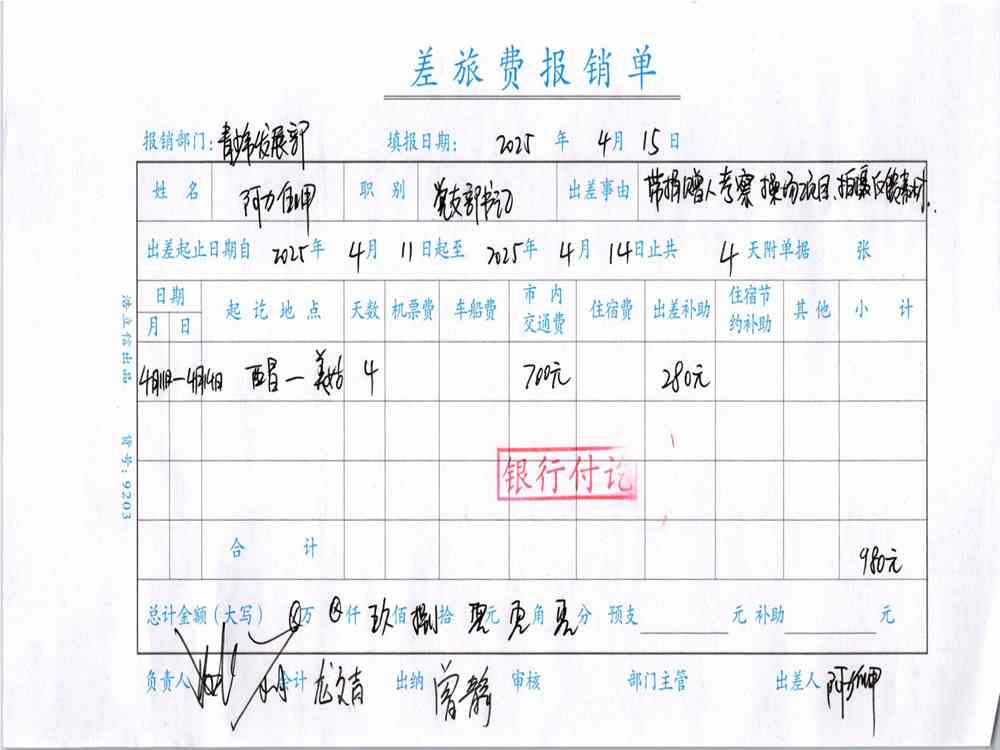 差旅费报销单
报销部门: 青少年发展部 填报日期: 2025 年 4月 15 日
姓名 阿力伍呷 职别 党支部书记 出差事由 带捐赠人考察操场项目、拍摄反馈素材
出差起止日期自 2025年 4月 11日起至 2025年 4月 14日止共 4 天附单据 张
日期 起讫地点 天数 机票费 车船费 市内交通费 住宿费 出差补助 住宿节约补助 其他 小计
月 日
4月11日—4月14日 西昌—美姑 4 700元 280元
银行付讫
合计 980元
总计金额(大写) 万 仟 玖佰 捌拾 零元 零角 零分 预支 元 补助 元
负责人 会计 尤文吉 出纳 曾静 审核 部门主管 出差人 阿力伍呷
浩立信出品 货号:9203